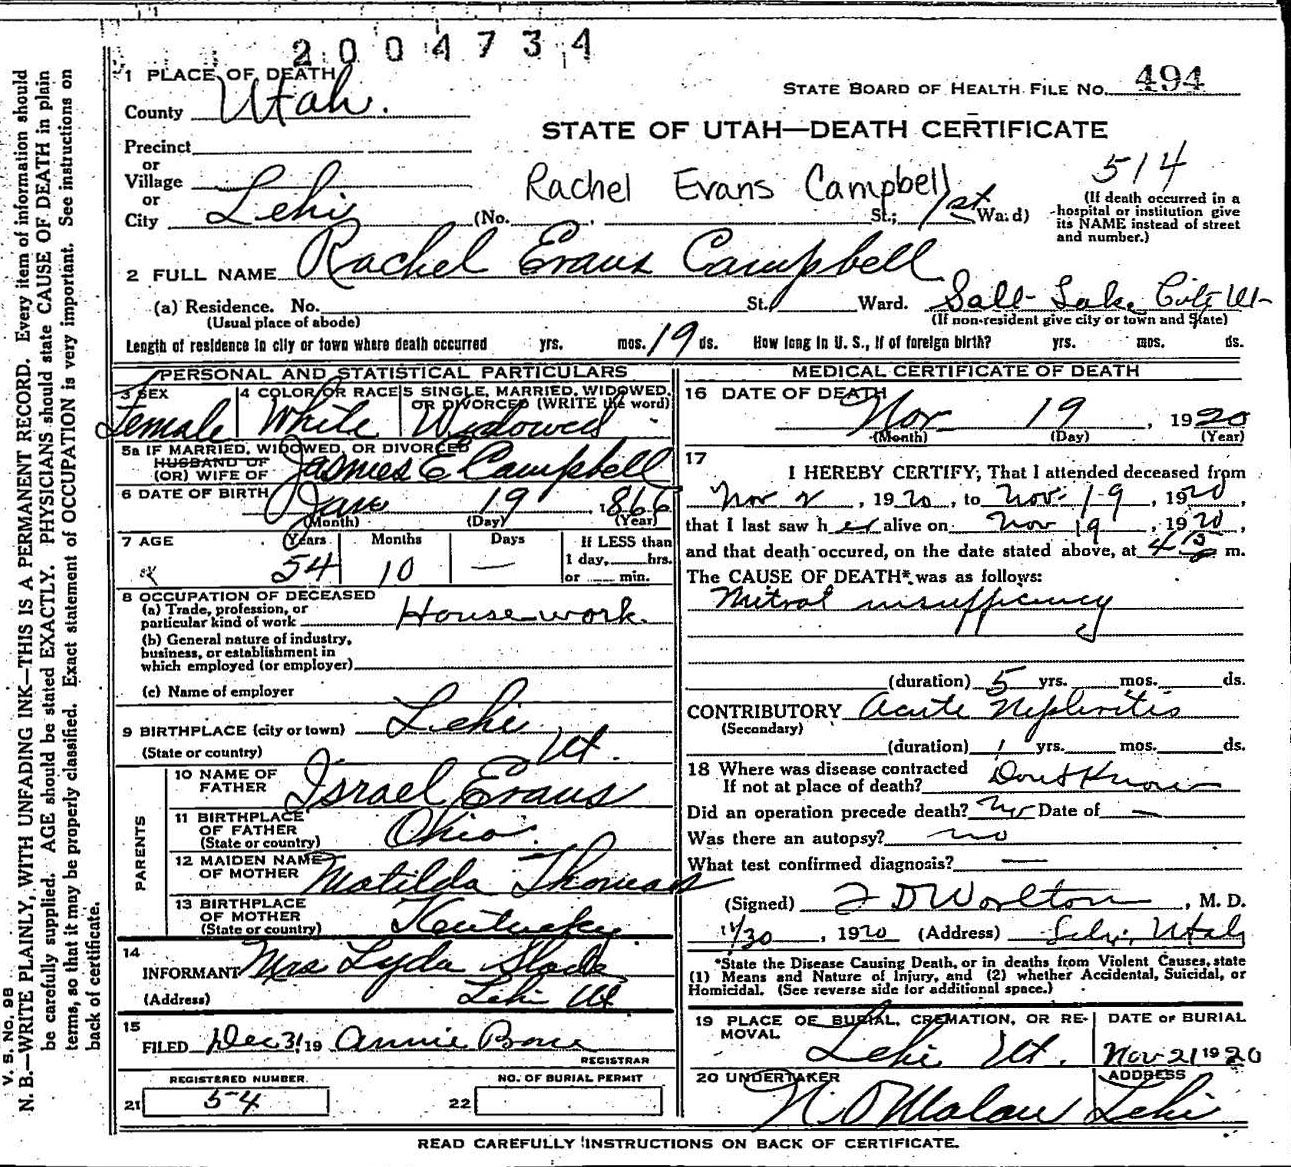 2004734
1 PLACE OF DEATH
County Utah.
STATE BOARD OF HEALTH FILE No. 494
STATE OF UTAH—DEATH CERTIFICATE
Precinct
or
Village
or
City Lehi (No. St.; 1st Ward)
Rachel Evans Campbell
514
(If death occurred in a hospital or institution give its NAME instead of street and number.)
2 FULL NAME Rachel Evans Campbell
(a) Residence. No. St. Ward. Salt Lake City Ut
(Usual place of abode) (If non-resident give city or town and State)
Length of residence in city or town where death occurred yrs. mos. 19 ds. How long in U. S., if of foreign birth? yrs. mos. ds.
PERSONAL AND STATISTICAL PARTICULARS
3 SEX Female
4 COLOR OR RACE White
5 SINGLE, MARRIED, WIDOWED, OR DIVORCED (WRITE the word) Widowed
5a IF MARRIED, WIDOWED, OR DIVORCED
HUSBAND OF
(OR) WIFE OF James E Campbell
6 DATE OF BIRTH Jan 19, 1866
(Month) (Day) (Year)
7 AGE Years Months Days If LESS than
54 10 — 1 day, hrs.
or min.
8 OCCUPATION OF DECEASED
(a) Trade, profession, or
particular kind of work House-work.
(b) General nature of industry,
business, or establishment in
which employed (or employer)
(c) Name of employer
9 BIRTHPLACE (city or town) Lehi
(State or country) Ut.
PARENTS
10 NAME OF FATHER Israel Evans
11 BIRTHPLACE OF FATHER (State or country) Ohio.
12 MAIDEN NAME OF MOTHER Matilda Thomas
13 BIRTHPLACE OF MOTHER (State or country) Kentucky
14
INFORMANT Mrs Lyda Slade
(Address) Lehi Ut
15
FILED Dec 31 19 Annie Bone
REGISTRAR
REGISTERED NUMBER
21 54
NO. OF BURIAL PERMIT
22
MEDICAL CERTIFICATE OF DEATH
16 DATE OF DEATH
Nov 19, 1920
(Month) (Day) (Year)
17
I HEREBY CERTIFY, That I attended deceased from
Nov 2, 1920, to Nov. 19, 1920,
that I last saw her alive on Nov 19, 1920,
and that death occured, on the date stated above, at m.
The CAUSE OF DEATH* was as follows:
Mitral insufficiency
(duration) 5 yrs. mos. ds.
CONTRIBUTORY Acute Nephritis
(Secondary)
(duration) 1 yrs. mos. ds.
18 Where was disease contracted
If not at place of death? Dont Know
Did an operation precede death? No Date of —
Was there an autopsy? no
What test confirmed diagnosis? —
(Signed) F D Worlton, M. D.
11/30, 1920 (Address) Lehi, Utah
*State the Disease Causing Death, or in deaths from Violent Causes, state
(1) Means and Nature of Injury, and (2) whether Accidental, Suicidal, or
Homicidal. (See reverse side for additional space.)
19 PLACE OF BURIAL, CREMATION, OR REMOVAL Lehi Ut.
DATE OF BURIAL
Nov-21 1920
20 UNDERTAKER
N O Malan
ADDRESS
Lehi
READ CAREFULLY INSTRUCTIONS ON BACK OF CERTIFICATE.
V. S. No. 98
N. B.—WRITE PLAINLY, WITH UNFADING INK—THIS IS A PERMANENT RECORD. Every item of information should
be carefully supplied. AGE should be stated EXACTLY. PHYSICIANS should state CAUSE OF DEATH in plain
terms, so that it may be properly classified. Exact statement of OCCUPATION is very important. See instructions on
back of certificate.